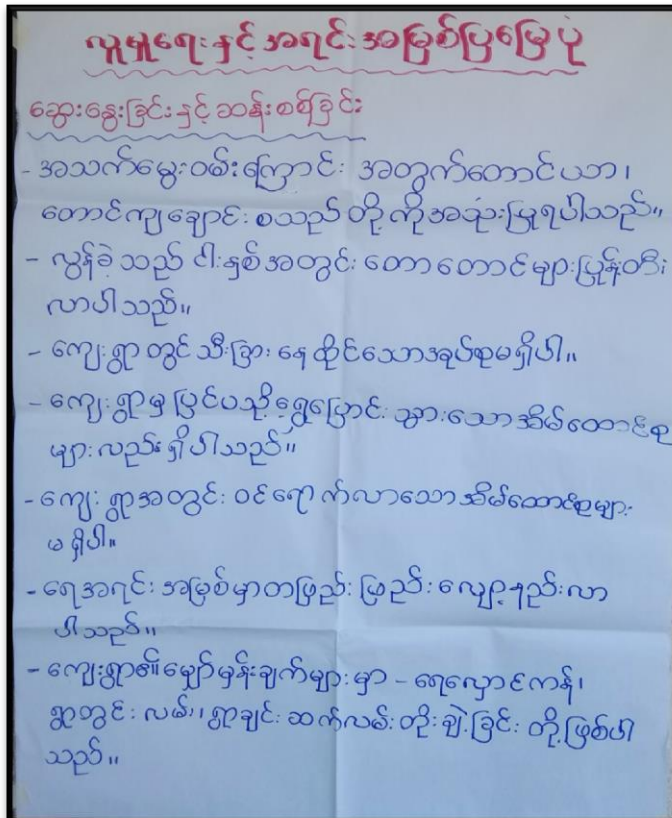 လူမှုရေးနှင့် အရင်းအမြစ်ပြမြေပုံ
ဆွေးနွေးခြင်းနှင့် ဆန်းစစ်ခြင်း
- အသက်မွေးဝမ်းကြောင်း အတွက်တောင်ယာ၊
တောင်ကျချောင်း စသည်တို့ကိုအသုံးပြုရပါသည်။
- လွန်ခဲ့သည် ငါးနှစ်အတွင်း တောတောင်များပြုန်းတီး
လာပါသည်။
- ကျေးရွာတွင်သီးခြားနေထိုင်သောအုပ်စုမရှိပါ။
- ကျေးရွာမှ ပြင်ပသို့ရွှေ့ပြောင်းသွားသောအိမ်ထောင်စု
များလည်းရှိပါသည်။
- ကျေးရွာအတွင်း ဝင်ရောက်လာသောအိမ်ထောင်စုများ
မရှိပါ။
- ရေအရင်းအမြစ်မှာတဖြည်းဖြည်းလျော့နည်းလာ
ပါသည်။
- ကျေးရွာ၏မျှော်မှန်းချက်များမှာ - ရေလှောင်ကန်၊
ရွာတွင်းလမ်း၊ ရွာချင်းဆက်လမ်းတိုးချဲ့ခြင်းတို့ဖြစ်ပါ
သည်။